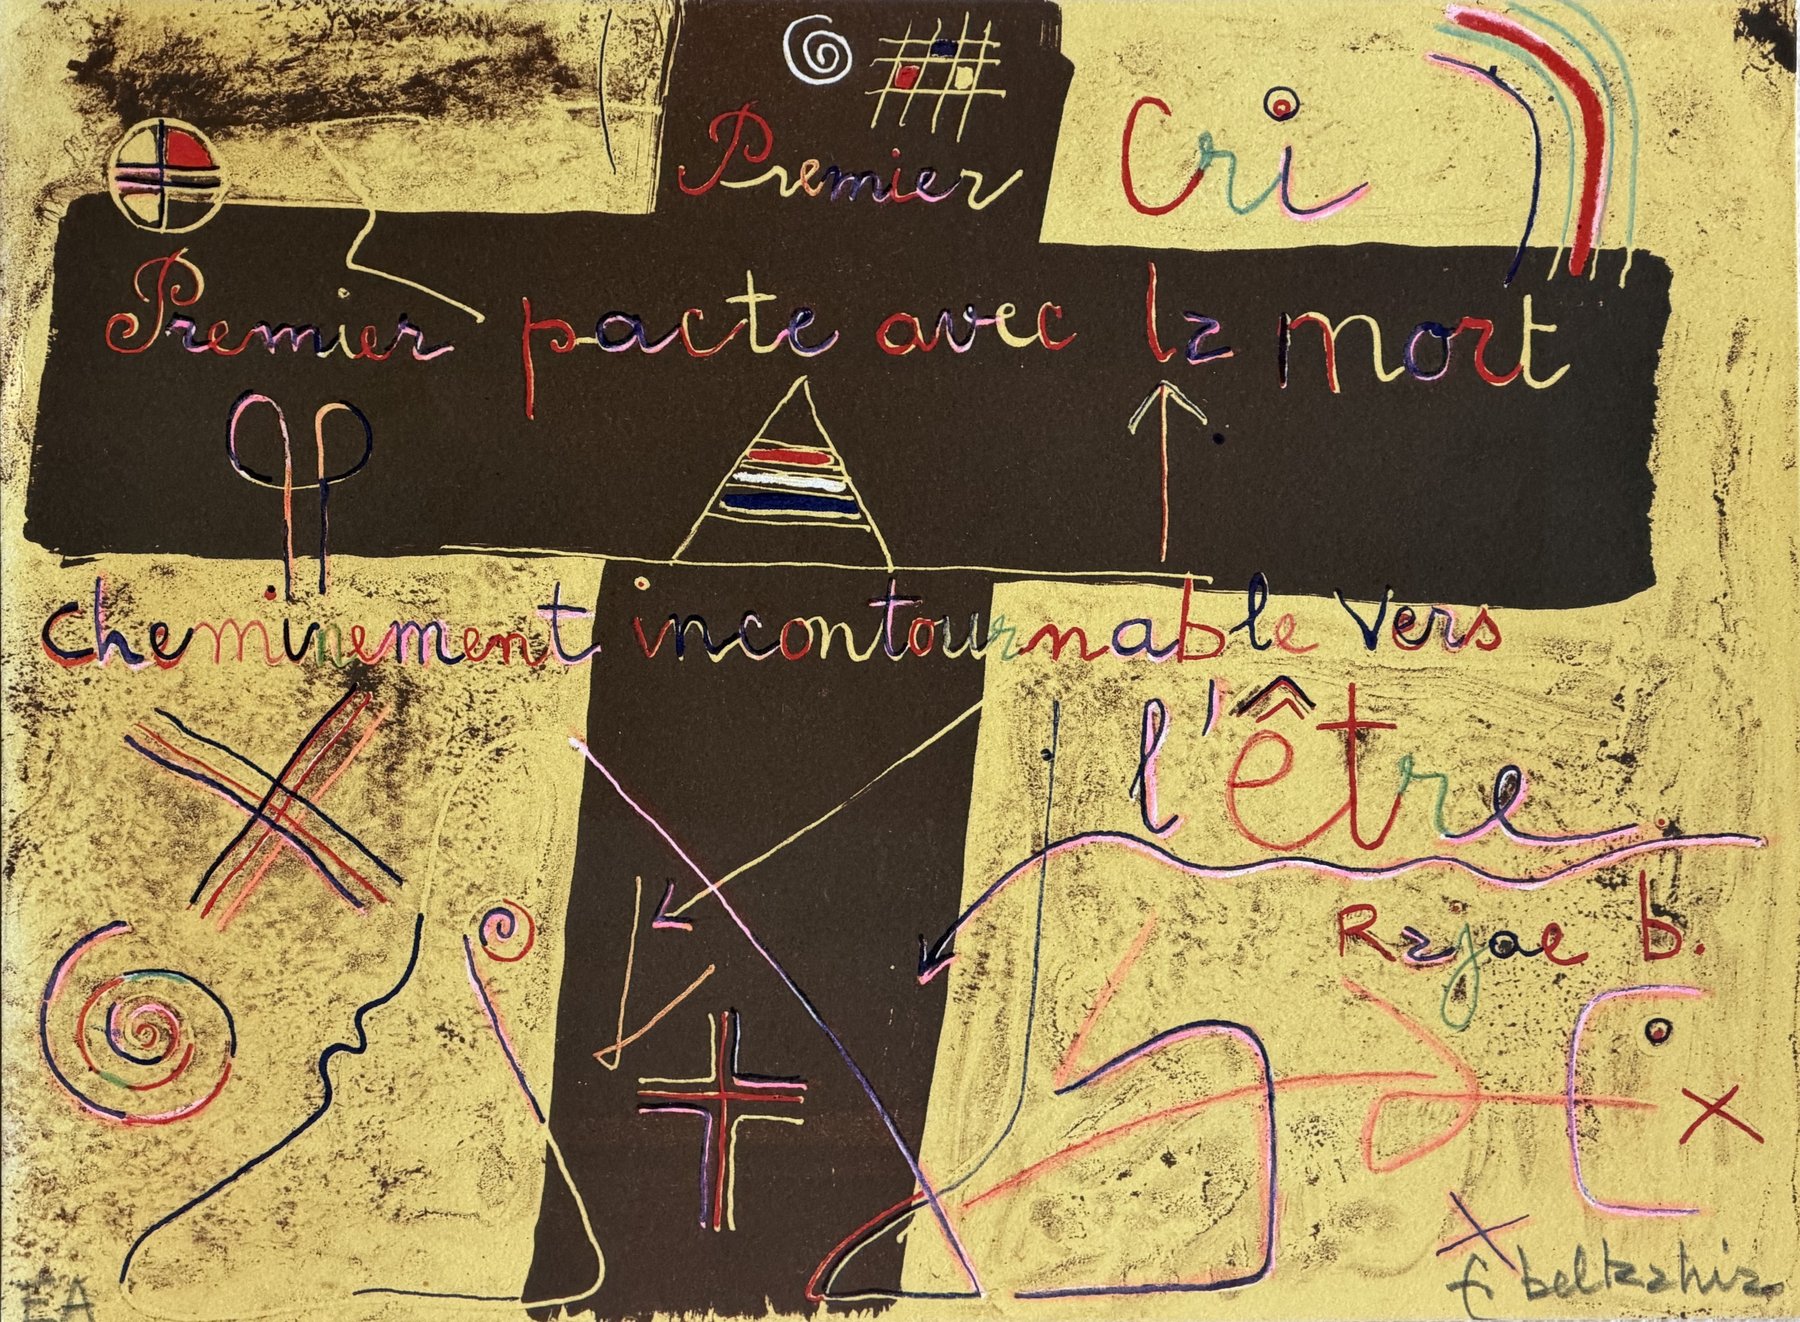 Premier Cri
Premier pacte avec la mort
cheminement incontournable vers
l'être
Rajae b.
EA
f. beltzahiz